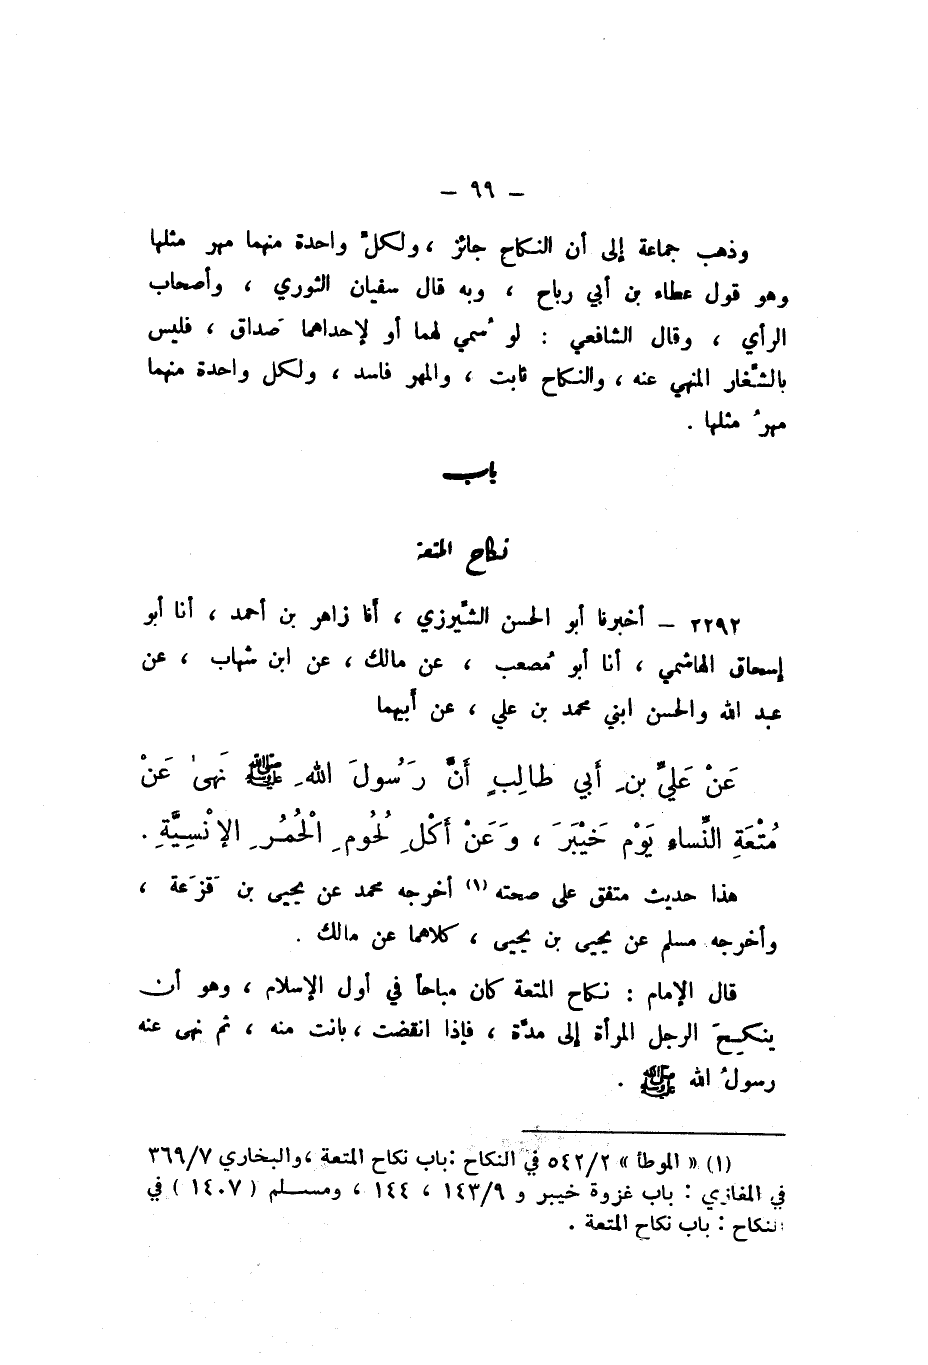 – ٩٩ –
وذهب جماعة إلى أن النكاح جائز ، ولكلّ واحدة منهما مهر مثلها
وهو قول عطاء بن أبي رباح ، وبه قال سفيان الثوري ، وأصحاب
الرأي ، وقال الشافعي : لو سُمي لهما أو لإحداهما صَداق ، فليس
بالشَّغار المنهي عنه ، والنكاح ثابت ، والمهر فاسد ، ولكل واحدة منهما
مهرُ مثلها .
باب
نكاح المتعة
٢٢٩٢ – أخبرنا أبو الحسن الشَّيرزي ، أنا زاهر بن أحمد ، أنا أبو
إسحاق الهاشمي ، أنا أبو مُصعب ، عن مالك ، عن ابن شهاب ، عن
عبد الله والحسن ابني محمد بن علي ، عن أبيهما
عَنْ عَليِّ بنِ أَبي طالِبٍ أَنَّ رَسُولَ اللهِ ﷺ نَهىٰ عَنْ
مُتْعَةِ النِّساءِ يَوْمَ خَيْبَرَ ، وَعَنْ أَكْلِ لُحُومِ الْحُمُرِ الإنْسِيَّةِ .
هذا حديث متفق على صحته (١) أخرجه محمد عن يحيى بن قَزَعة ،
وأخرجه مسلم عن يحيى بن يحيى ، كلاهما عن مالك .
قال الإمام : نكاح المتعة كان مباحاً في أول الإسلام ، وهو أن
ينكِحَ الرجل المرأة إلى مدَّة ، فإذا انقضت ، بانت منه ، ثم نهى عنه
رسولُ الله ﷺ .
(١) « الموطأ » ٥٤٢/٢ في النكاح : باب نكاح المتعة ، والبخاري ٣٦٩/٧
في المغازي : باب غزوة خيبر و ١٤٣/٩ ، ١٤٤ ، ومسلم ( ١٤٠٧ ) في
النكاح : باب نكاح المتعة .